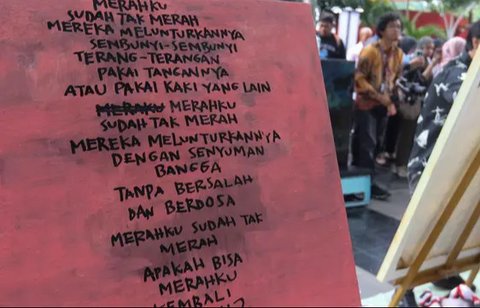 MERAHKU
SUDAH TAK MERAH
MEREKA MELUNTURKANNYA
SEMBUNYI-SEMBUNYI
TERANG-TERANGAN
PAKAI TANGANNYA
ATAU PAKAI KAKI YANG LAIN
MERAHKU
SUDAH TAK MERAH
MEREKA MELUNTURKANNYA
DENGAN SENYUMAN
BANGGA
TANPA BERSALAH
DAN BERDOSA
MERAHKU SUDAH TAK
MERAH
APAKAH BISA
MERAHKU
KEMBALI